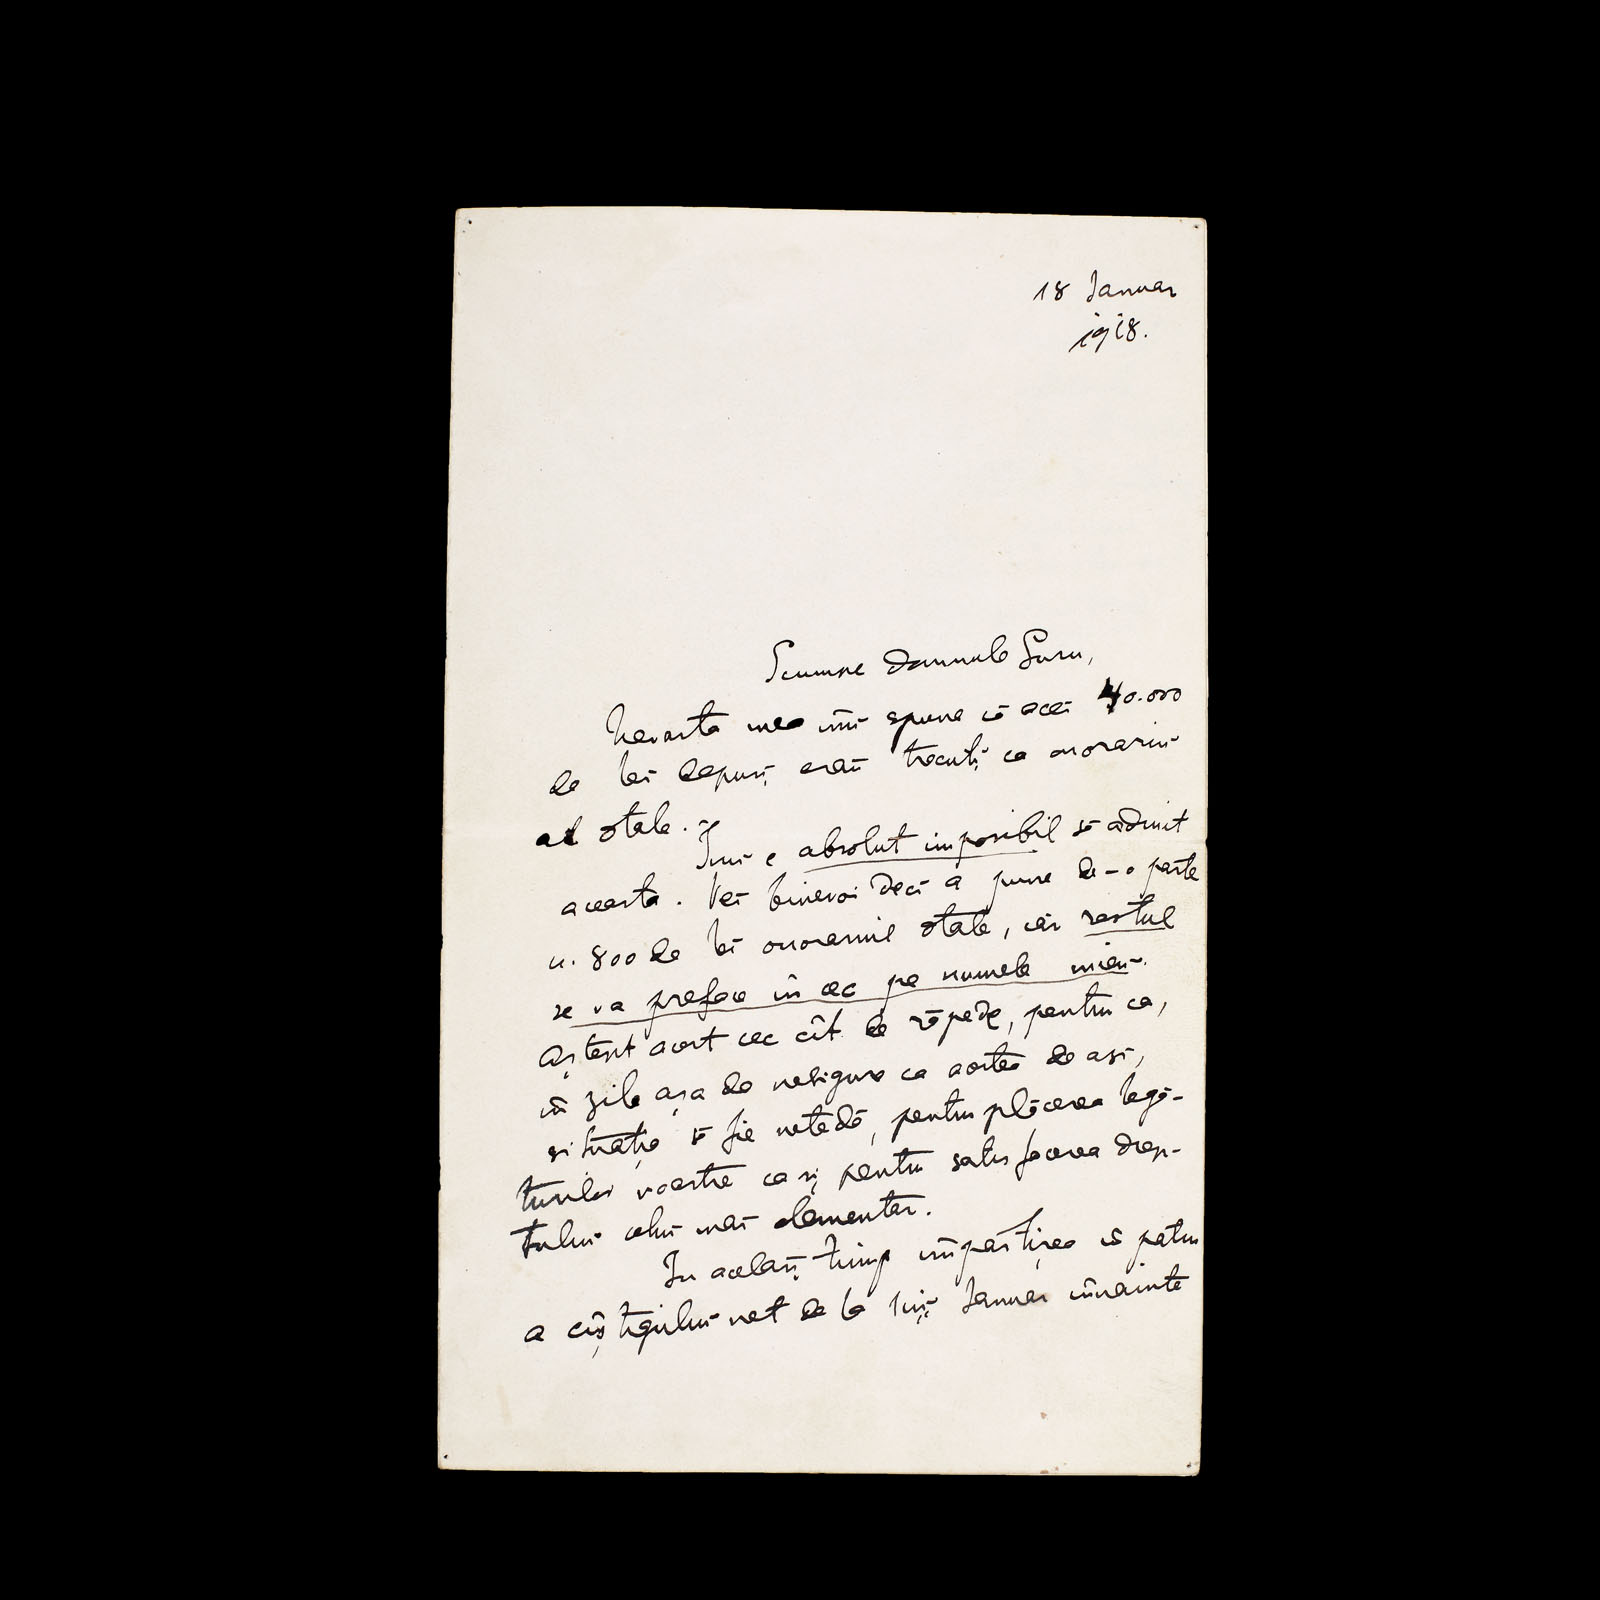 18 Ianuar
1918.
Scumpe domnule Suru,
Nevasta mea îmi spune că acei 40.000
de lei depuși erau trecuți ca onorariu
al d-tale.
Îmi e absolut imposibil să admit
aceasta. Vei binevoi deci a pune de-o parte
800 de lei onorariul d-tale, iar restul
se va preface în cec pe numele mieu.
Aștept acest cec cît de răpede, pentru ca,
în zile așa de nesigure ca acestea de azi,
situația să fie netedă, pentru plăcerea legă-
turilor noastre ca și pentru satisfacerea drep-
tului celui mai elementar.
In acelaș timp împărțirea în patru
a cîștigului net de la 1iu Ianuar înainte